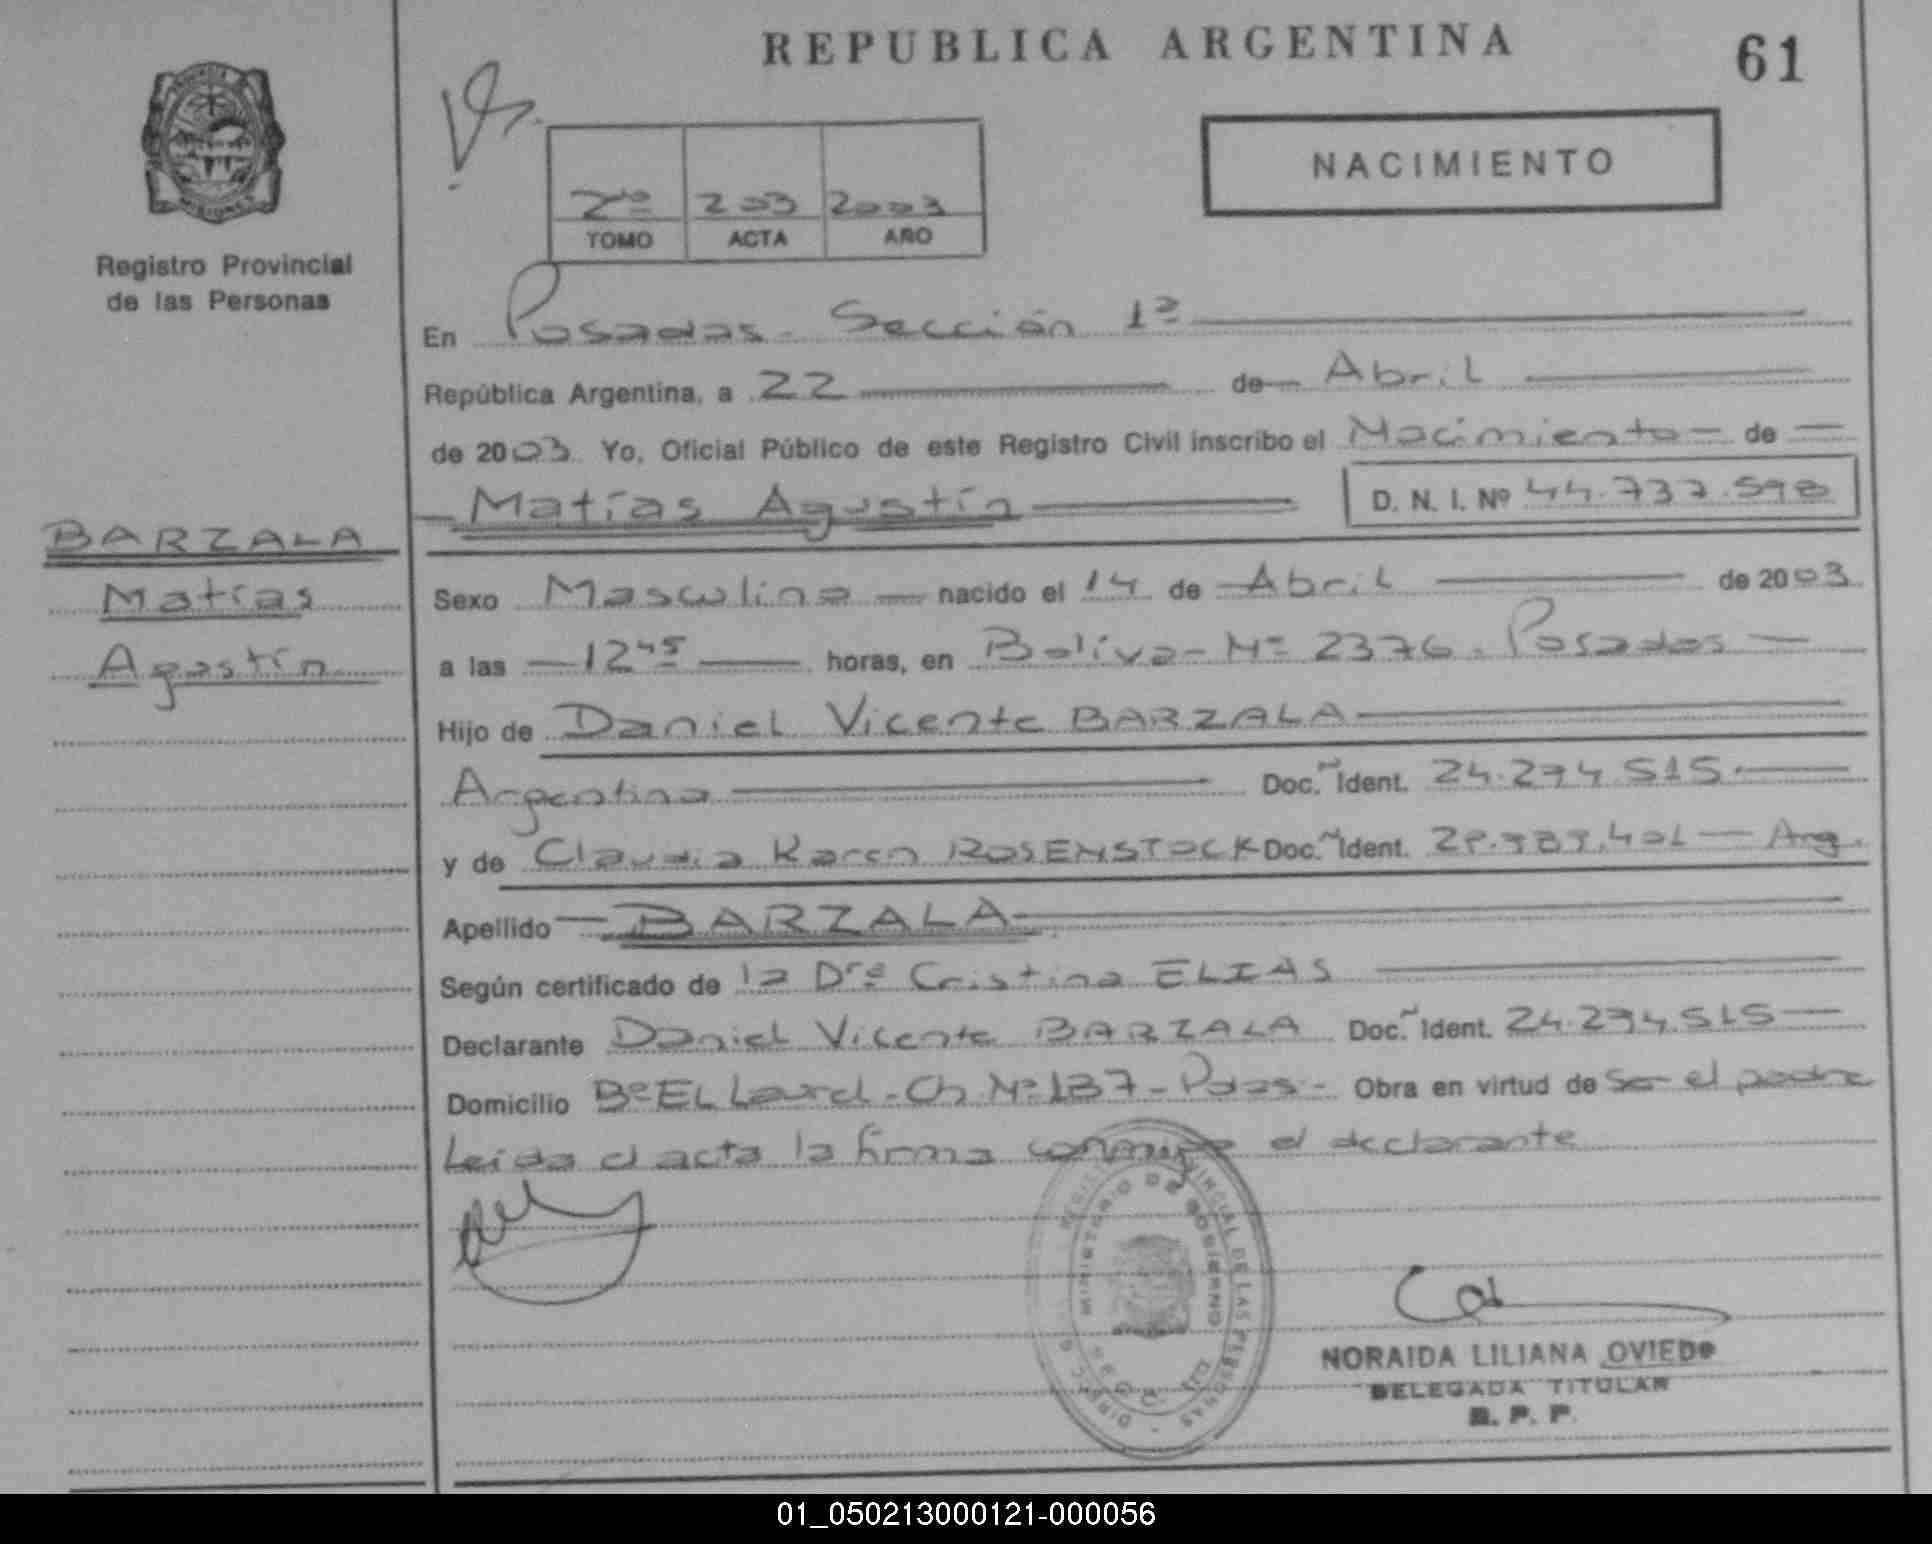 REPUBLICA ARGENTINA
61
NACIMIENTO
2do 203 2003
TOMO ACTA AÑO
Registro Provincial
de las Personas
En Posadas - Sección 1ª
República Argentina, a 22 de Abril
de 2003 Yo, Oficial Público de este Registro Civil inscribo el Nacimiento de
Matías Agustín
D. N. I. Nº 44.737.598
BARZALA
Matías
Agustín
Sexo Masculino nacido el 14 de Abril de 2003
a las 12 45 horas, en Bolívar Nº 2376 - Posadas
Hijo de Daniel Vicente BARZALA
Argentino Doc. Ident. 24.294.515
y de Claudia Karen ROSENSTOCK Doc. Ident. Arg.
Apellido BARZALA
Según certificado de la Dra Cristina ELIAS
Declarante Daniel Vicente BARZALA Doc. Ident. 24.294.515
Domicilio Bº EL Laurel - Ch Nº 137 - Pdas - Obra en virtud de ser el padre
Leida el acta la firma conmigo el declarante
MINISTERIO DE GOBIERNO
PROVINCIAL DE LAS PERSONAS
NORAIDA LILIANA OVIEDO
DELEGADA TITULAR
R. P. P.
01_050213000121-000056